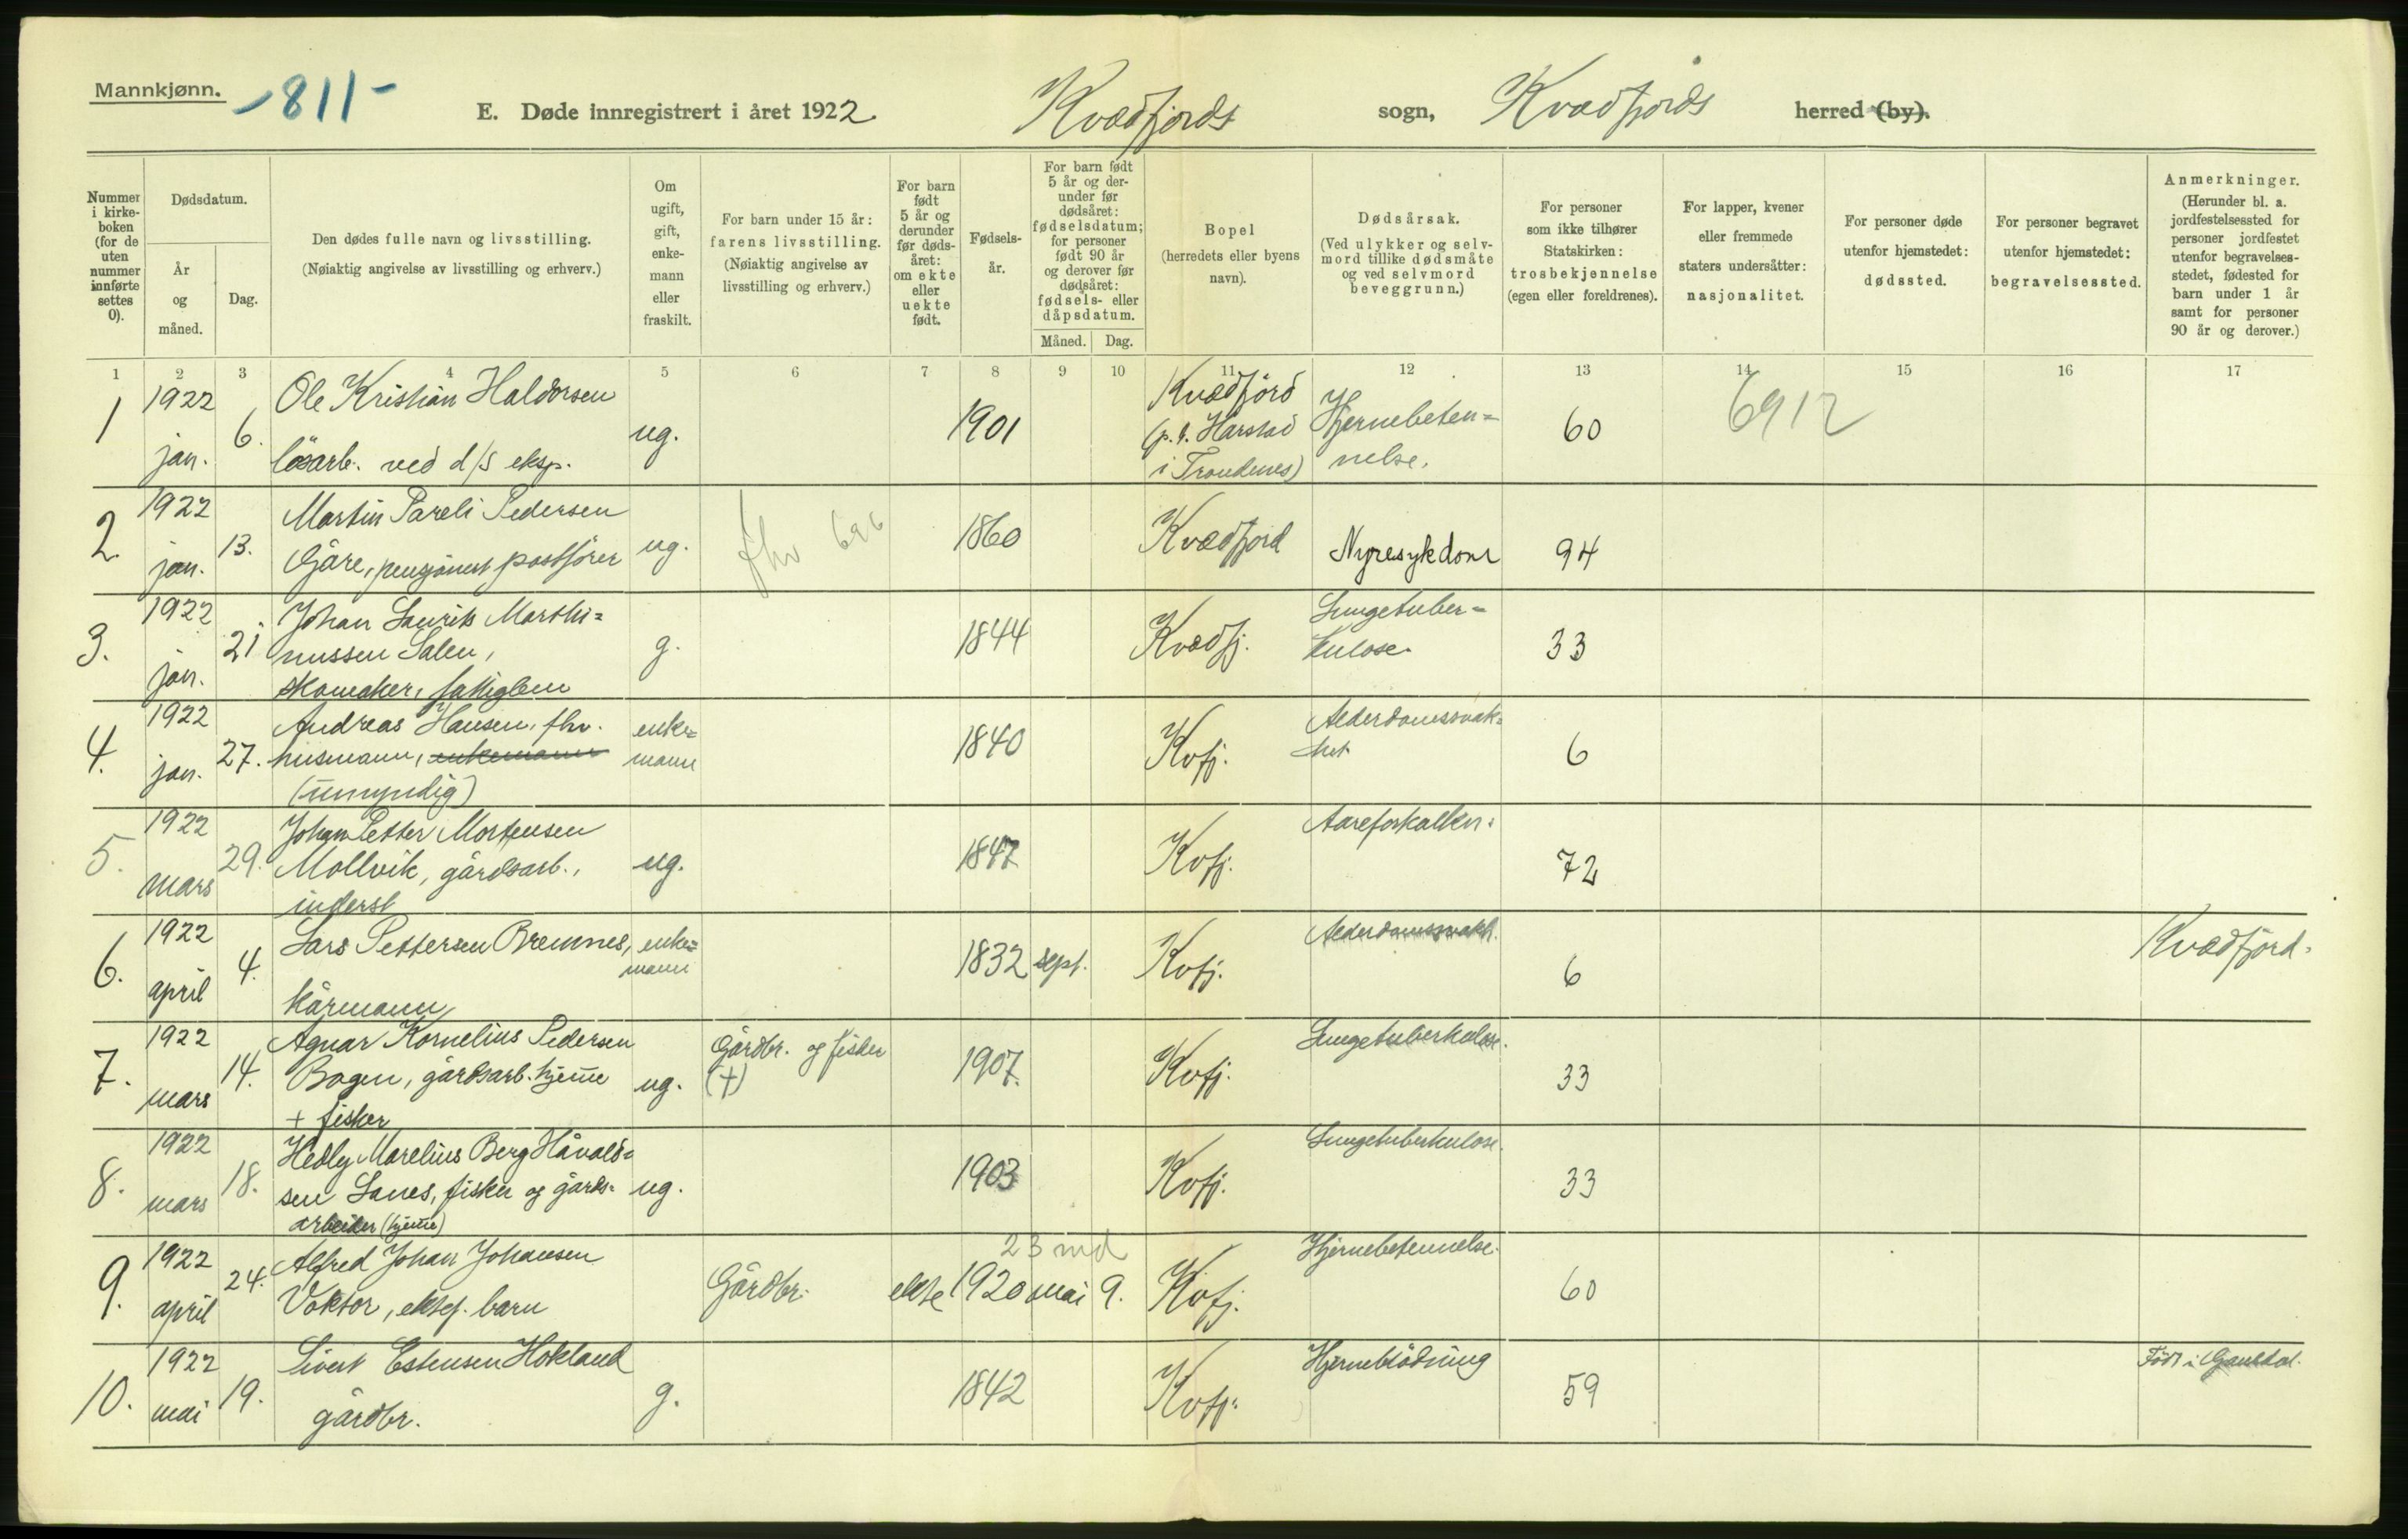 Mannkjønn.
-811-
E. Døde innregistrert i året 1922.
Kvædfjords sogn, Kvædfjords herred (by).
Nummer i kirkeboken (for de uten nummer innførte settes 0).
Dødsdatum.
År og måned.
Dag.
Den dødes fulle navn og livsstilling.
(Nøiaktig angivelse av livsstilling og erhverv.)
Om ugift, gift, enkemann eller fraskilt.
For barn under 15 år: farens livsstilling.
(Nøiaktig angivelse av livsstilling og erhverv.)
For barn født 5 år og derunder før dødsåret: om ekte eller uekte født.
Fødselsår.
For barn født 5 år og derunder før dødsåret: fødselsdatum; for personer født 90 år og derover før dødsåret: fødsels- eller dåpsdatum.
Måned. Dag.
Bopel (herredets eller byens navn).
Dødsårsak.
(Ved ulykker og selvmord tillike dødsmåte og ved selvmord beveggrunn.)
For personer som ikke tilhører Statskirken: trosbekjennelse (egen eller foreldrenes).
For lapper, kvener eller fremmede staters undersåtter: nasjonalitet.
For personer døde utenfor hjemstedet: dødssted.
For personer begravet utenfor hjemstedet: begravelsessted.
Anmerkninger.
(Herunder bl. a. jordfestelsessted for personer jordfestet utenfor begravelsesstedet, fødested for barn under 1 år samt for personer 90 år og derover.)
1 2 3 4 5 6 7 8 9 10 11 12 13 14 15 16 17
1 1922 jan. 6. Ole Kristian Haldorsen
lösarb. ved d/s eksp. ug. 1901 Kvædfjord
(p.t. Harstad
i Trondenes) Hjernebeten=
nelse. 60 6912
2. 1922 jan. 13. Martin Pareli Pedersen
Gåre, pensjonert postförer ug. fhv 696 1860 Kvædfjord Nyresykdom 94
3. 1922 jan. 21. Johan Laurits Marthi=
nussen Salen,
skomaker, fattiglem g. 1844 Kvædfj. Lungetuber=
kulose. 33
4. 1922 jan. 27. Andreas Hansen, fhv.
husmann, enkemann
(umyndig) enke=
mann 1840 Kvfj. Alderdomssvak=
het 6
5. 1922 mars 29. Johan Petter Mortensen
Mollvik, gårdsarb.,
inderst ug. 1847 Kvfj. Aareforkalkn. 72
6. 1922 april 4. Lars Pettersen Bremnes,
kårmann enke=
mann 1832 sept. Kvfj. Alderdomssvakh. 6 Kvædfjord.
7. 1922 mars 14. Agnar Kornelius Pedersen
Bogen, gårdsarb. hjeme
+ fisker ug. Gårdbr. og fisker
(+) 1907. Kvfj. Lungetuberkulose. 33
8. 1922 mars 18. Hedly Marelius Berg Håvald=
sen Lanes, fisker og gårds=
arbeider (hjeme) ug. 1903 Kvfj. Lungetuberkulose. 33
9. 1922 april 24. Alfred Johan Johansen
Voktor, ektef. barn Gårdbr. ekte 1920 mai 9. 23 md Kvfj. Hjernebetennelse. 60
10. 1922 mai 19. Sivert Estensen Hokland
gårdbr. g. 1842 Kvfj. Hjerneblödning 59 Född i Gauldal.